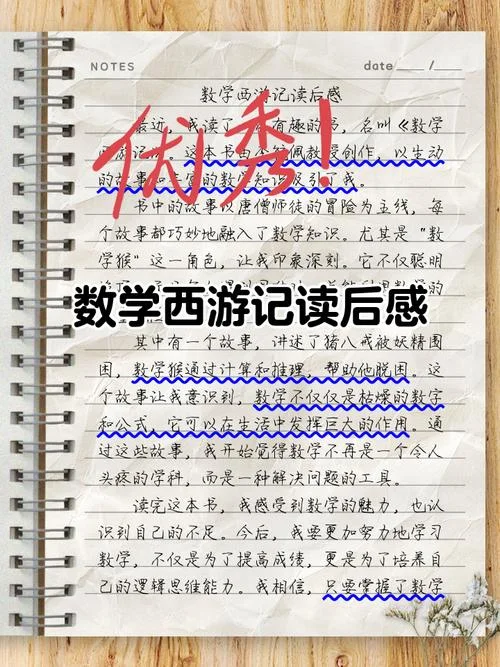 NOTES
date ____ / ____
数学西游记读后感
优秀!
最近,我读了一有趣的,名叫《数学
西游记》。这本书由佩教授创作,以生动
的故事和丰富的数学知识吸引了我。
书中的故事以唐僧师徒的冒险为主线,每
个故事都巧妙地融入了数学知识。尤其是“数
学猴”这一角色,让我印象深刻。它不仅聪明
数学西游记读后感
其中有一个故事,讲述了猪八戒被妖精围
困,数学猴通过计算和推理,帮助他脱困。这
个故事让我意识到,数学不仅仅是枯燥的数字
和公式,它可以在生活中发挥巨大的作用。通
过这些故事,我开始觉得数学不再是一个令人
头疼的学科,而是一种解决问题的工具。
读完这本书,我感受到数学的魅力,也认
识到自己的不足。今后,我要更加努力地学习
数学,不仅是为了提高成绩,更是为了培养自
己的逻辑思维能力。我相信,只要掌握了数学